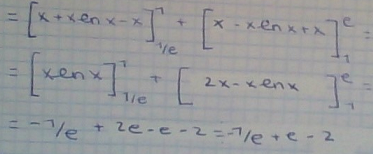 = [x + xlnx - x]¹₁/ₑ + [x - xlnx + x]ᵉ₁ =
= [xlnx]¹₁/ₑ + [2x - xlnx]ᵉ₁ =
= -¹/e + 2e - e - 2 = -¹/e + e - 2